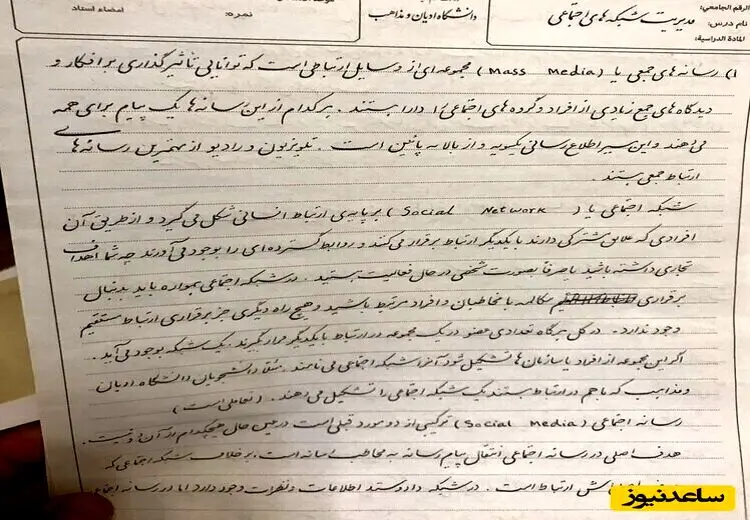 الرقم الجامعي:
نام درس: مدیریت شبکه های اجتماعی
المادة الدراسية:
دانشگاه ادیان و مذاهب
نمره:
امضاء استاد
۱) رسانه های جمعی یا (Mass Media) مجموعه ای از وسایل ارتباطی است که توانایی تأثیر گذاری بر افکار و
دیدگاه های جمع زیادی از افراد و گروه های اجتماعی را دارا هستند. هر کدام از این رسانه ها یک پیام برای همه
می دهند و این سیر اطلاع رسانی یکسویه و از بالا به پائین است. تلویزیون و رادیو از مهمترین رسانه های
ارتباط جمعی هستند.
شبکه اجتماعی یا (Social Network) بر پایه ی ارتباط انسانی شکل می گیرد و از طریق آن
افرادی که علایق مشترکی دارند با یکدیگر ارتباط برقرار می کنند و روابط گسترده ای را بوجود می آورند چه شما اهداف
تجاری داشته باشید یا صرفاً بصورت شخصی در حال فعالیت هستید. در شبکه اجتماعی همواره باید بدنبال
برقراری مکالمه با مخاطبان و افراد مرتبط باشید و هیچ راه دیگری جز برقراری ارتباط مستقیم
وجود ندارد. در کل هرگاه تعدادی عضو در یک مجموعه در ارتباط با یکدیگر قرار بگیرند یک شبکه بوجود می آید.
اگر این مجموعه از افراد یا سازمان ها تشکیل شود آنرا شبکه اجتماعی می نامند. مثلاً دانشجویان دانشگاه ادیان
و مذاهب که با هم در ارتباط هستند یک شبکه اجتماعی را تشکیل می دهند. (تعاملی است)
رسانه اجتماعی (Social Media) ترکیبی از دو مورد قبلی است در عین حال هیچکدام از آن دو نیست.
هدف اصلی در رسانه اجتماعی انتقال پیام رسانه به مخاطب است. برخلاف شبکه اجتماعی که
ارتباط است. در شبکه داد و ستد اطلاعات و نظرات وجود دارد اما در رسانه اجتماعی
ساعدنیوز